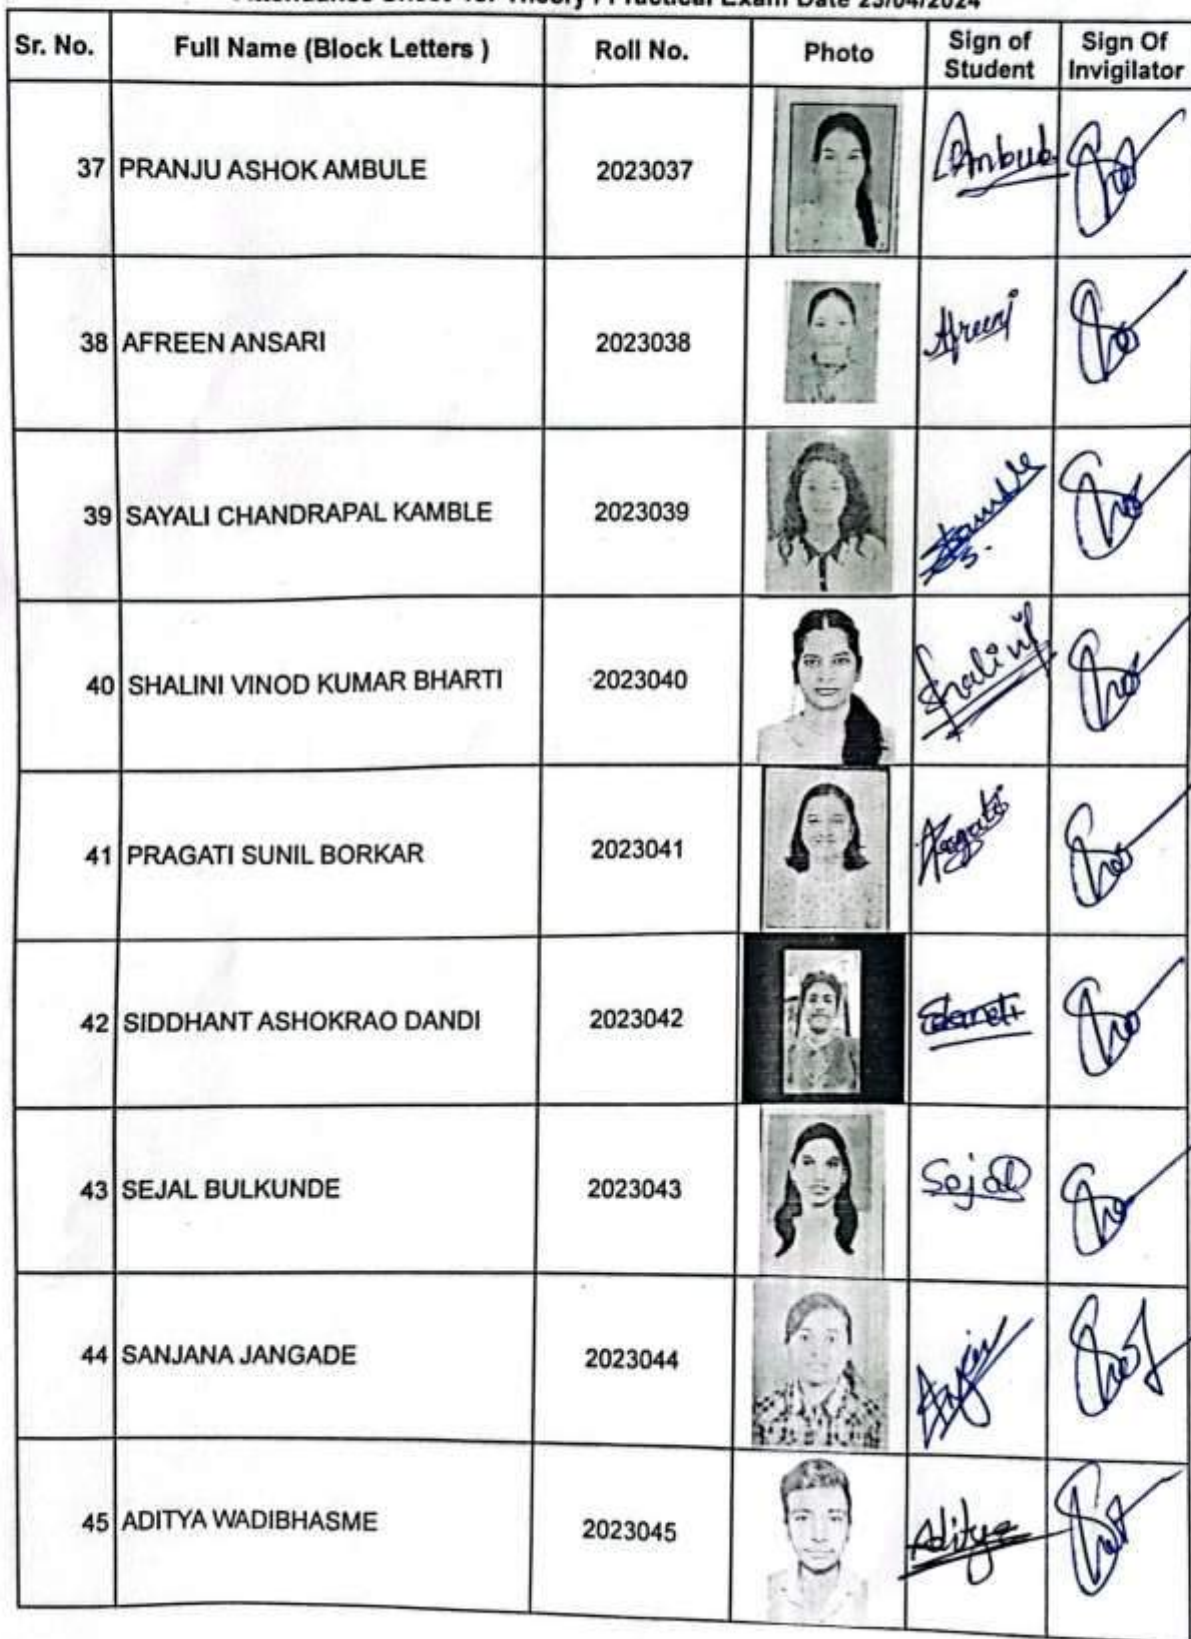 Attendance Sheet for Theory / Practical Exam Date 23/04/2024
Sr. No. Full Name (Block Letters ) Roll No. Photo Sign of Student Sign Of Invigilator
37 PRANJU ASHOK AMBULE 2023037
38 AFREEN ANSARI 2023038
39 SAYALI CHANDRAPAL KAMBLE 2023039
40 SHALINI VINOD KUMAR BHARTI 2023040 Shalini
41 PRAGATI SUNIL BORKAR 2023041
42 SIDDHANT ASHOKRAO DANDI 2023042
43 SEJAL BULKUNDE 2023043 Sejal
44 SANJANA JANGADE 2023044
45 ADITYA WADIBHASME 2023045 Aditya